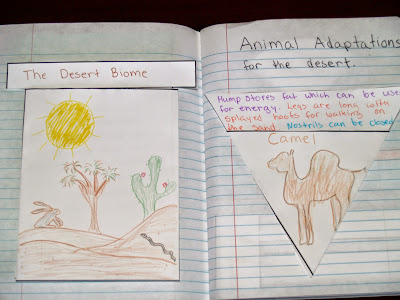 The Desert Biome
Animal Adaptations
for the desert.
Hump stores fat which can be used
for energy. Legs are long with
splayed hoofs for walking on
the sand. Nostrils can be closed
Camel